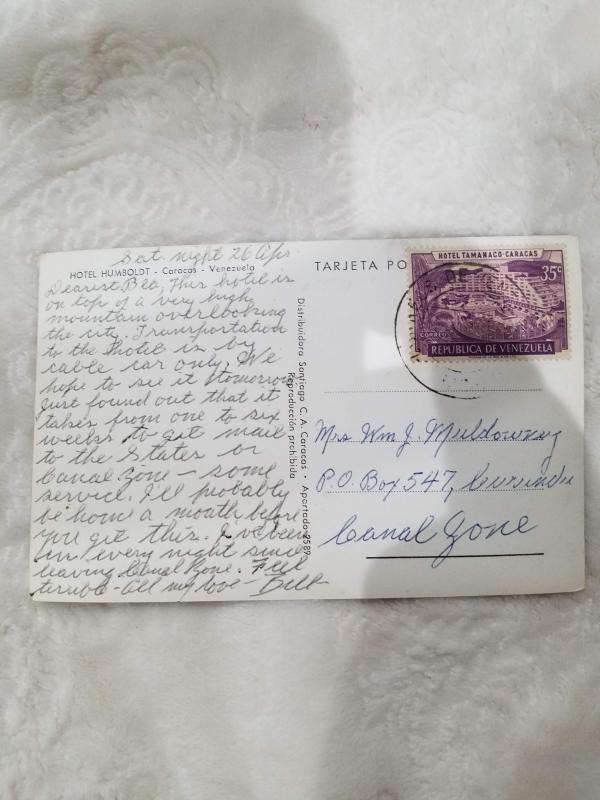 Sat. night 26 Apr.
HOTEL HUMBOLDT - Caracas - Venezuela
Dearest Bea, This hotel is
on top of a very high
mountain overlooking
the city. Transportation
to the hotel is by
cable car only. We
hope to see it tomorrow
Just found out that it
takes from one to six
weeks to get mail
to the States or
Canal Zone - some
service. I'll probably
be home a month before
you get this. I've been
in every night since
leaving Canal Zone. Feel
terrible - All my love - Bill
Distribuidora Santiago C. A. Caracas - Apartado 2589
Reproducción prohibida
TARJETA PO
HOTEL TAMANACO-CARACAS
35c
CORREOS
REPUBLICA DE VENEZUELA
Mrs Wm J. Muldowney
P.O. Box 547, Curundu
Canal Zone